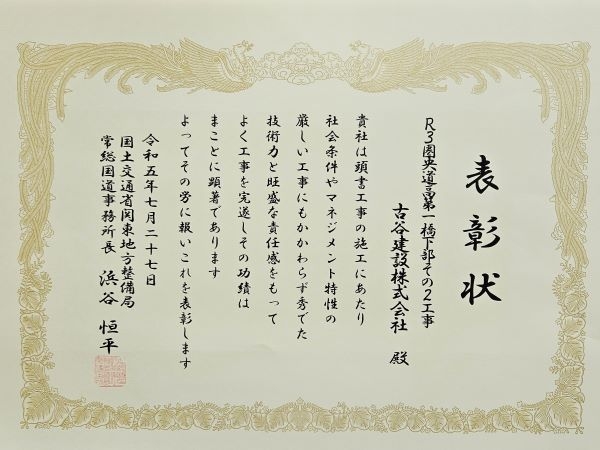 表彰状
R3圏央道高第一橋下部その2工事
古谷建設株式会社 殿
貴社は頭書工事の施工にあたり
社会条件やマネジメント特性の
厳しい工事にもかかわらず秀でた
技術力と旺盛な責任感をもって
よく工事を完遂しその功績は
まことに顕著であります
よってその労に報いこれを表彰します
令和五年七月二十七日
国土交通省関東地方整備局
常総国道事務所長 浜谷 恒平